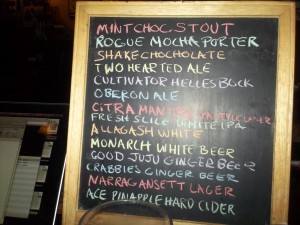 MINT CHOC. STOUT
ROGUE MOCHA PORTER
SHAKE CHOCHOLATE
TWO HEARTED ALE
CULTIVATOR HELLES BOCK
OBERON ALE
CITRA MANTRA IPA STYLE LAGER
FRESH SLICE WHITE IPA
ALLAGASH WHITE
MONARCH WHITE BEER
GOOD JUJU GINGER BEER
CRABBIES GINGER BEER
NARRAGANSETT LAGER
ACE PINAPPLE HARD CIDER